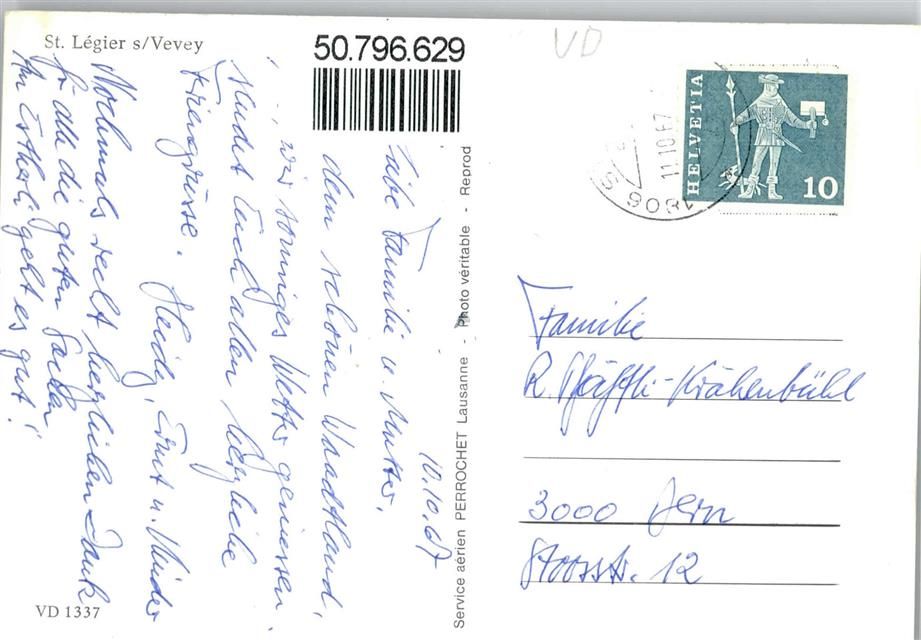 St. Légier s/Vevey
50.796.629
VD
HELVETIA
10
1806 S
11.10.67
10.10.67
Liebe Familie u. Mutter,
dem schönen Waadtland,
wir sonniges Wetter geniessen,
sendet Euch allen herzliche
Feriengrüsse. Heidy, Ernst u. Kinder
Nochmals recht herzlichen Dank
für alle die guten Sachen,
geht es gut!
Familie
R. Pfäffli-Krähenbühl
3000 Bern
Stoosstr. 12
Service aérien PERROCHET Lausanne - Photo véritable - Reprod
VD 1337